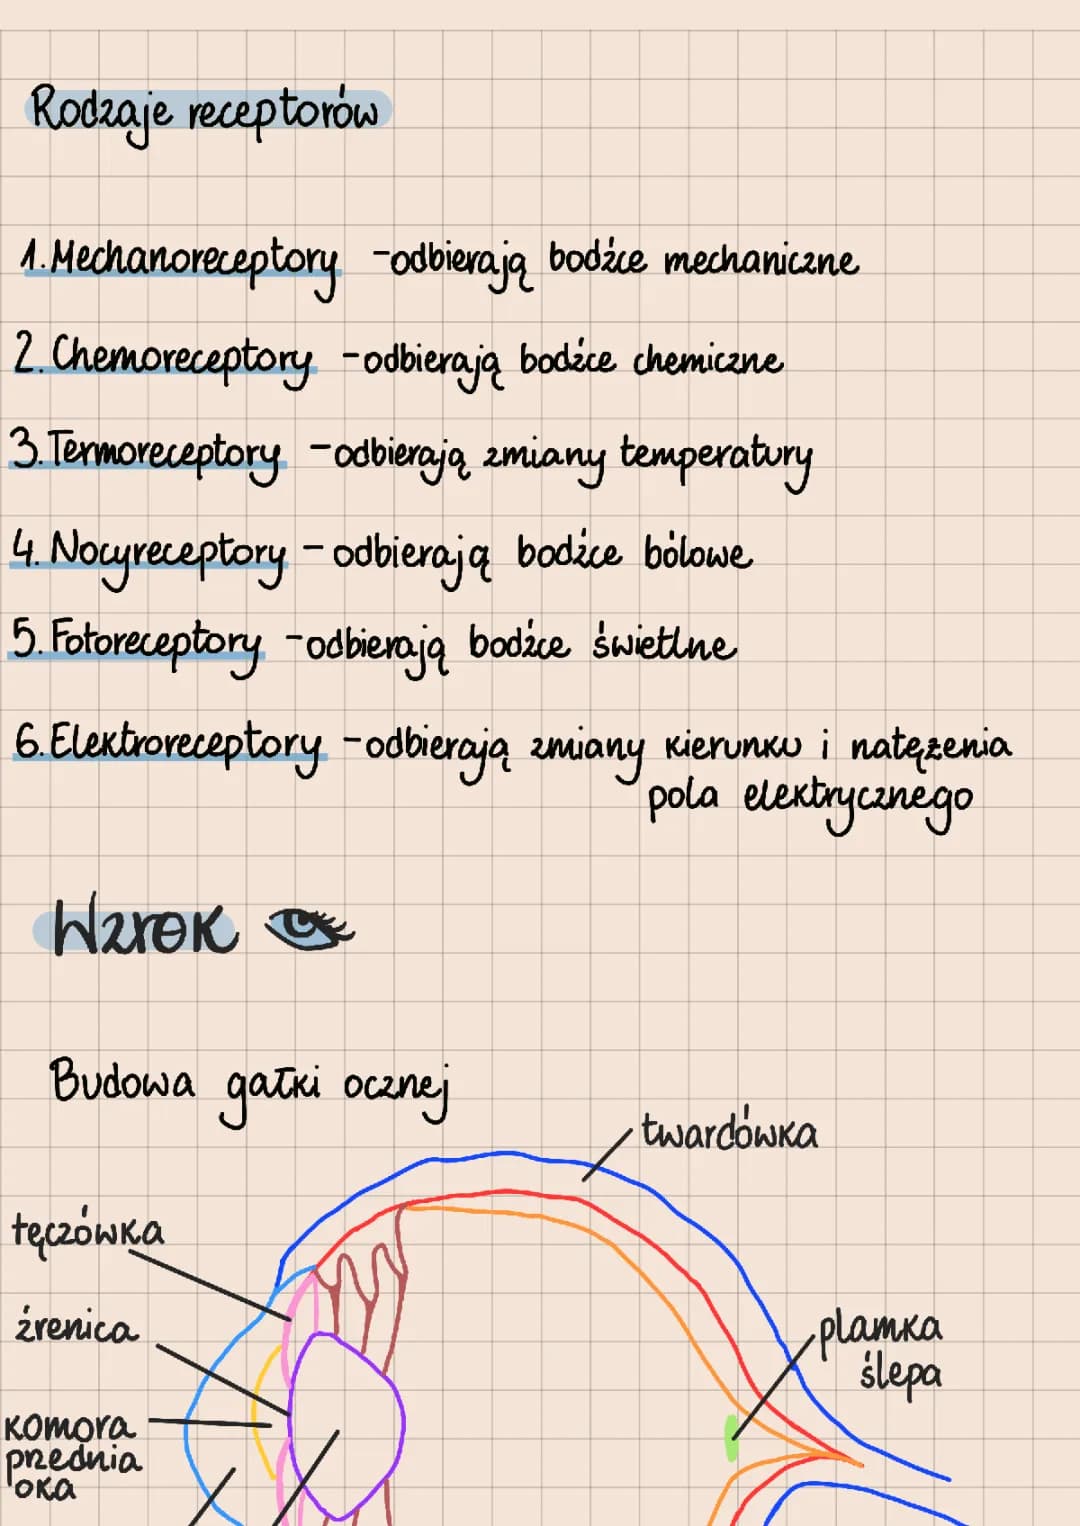 Rodzaje receptorów
1. Mechanoreceptory - odbierają bodźce mechaniczne
2. Chemoreceptory - odbierają bodźce chemiczne
3. Termoreceptory - odbierają zmiany temperatury
4. Nocyreceptory - odbierają bodźce bólowe
5. Fotoreceptory - odbierają bodźce świetlne
6. Elektroreceptory - odbierają zmiany kierunku i natężenia
pola elektrycznego
Wzrok
Budowa gałki ocznej
twardówka
tęczówka
źrenica
plamka
ślepa
komora
przednia
oka